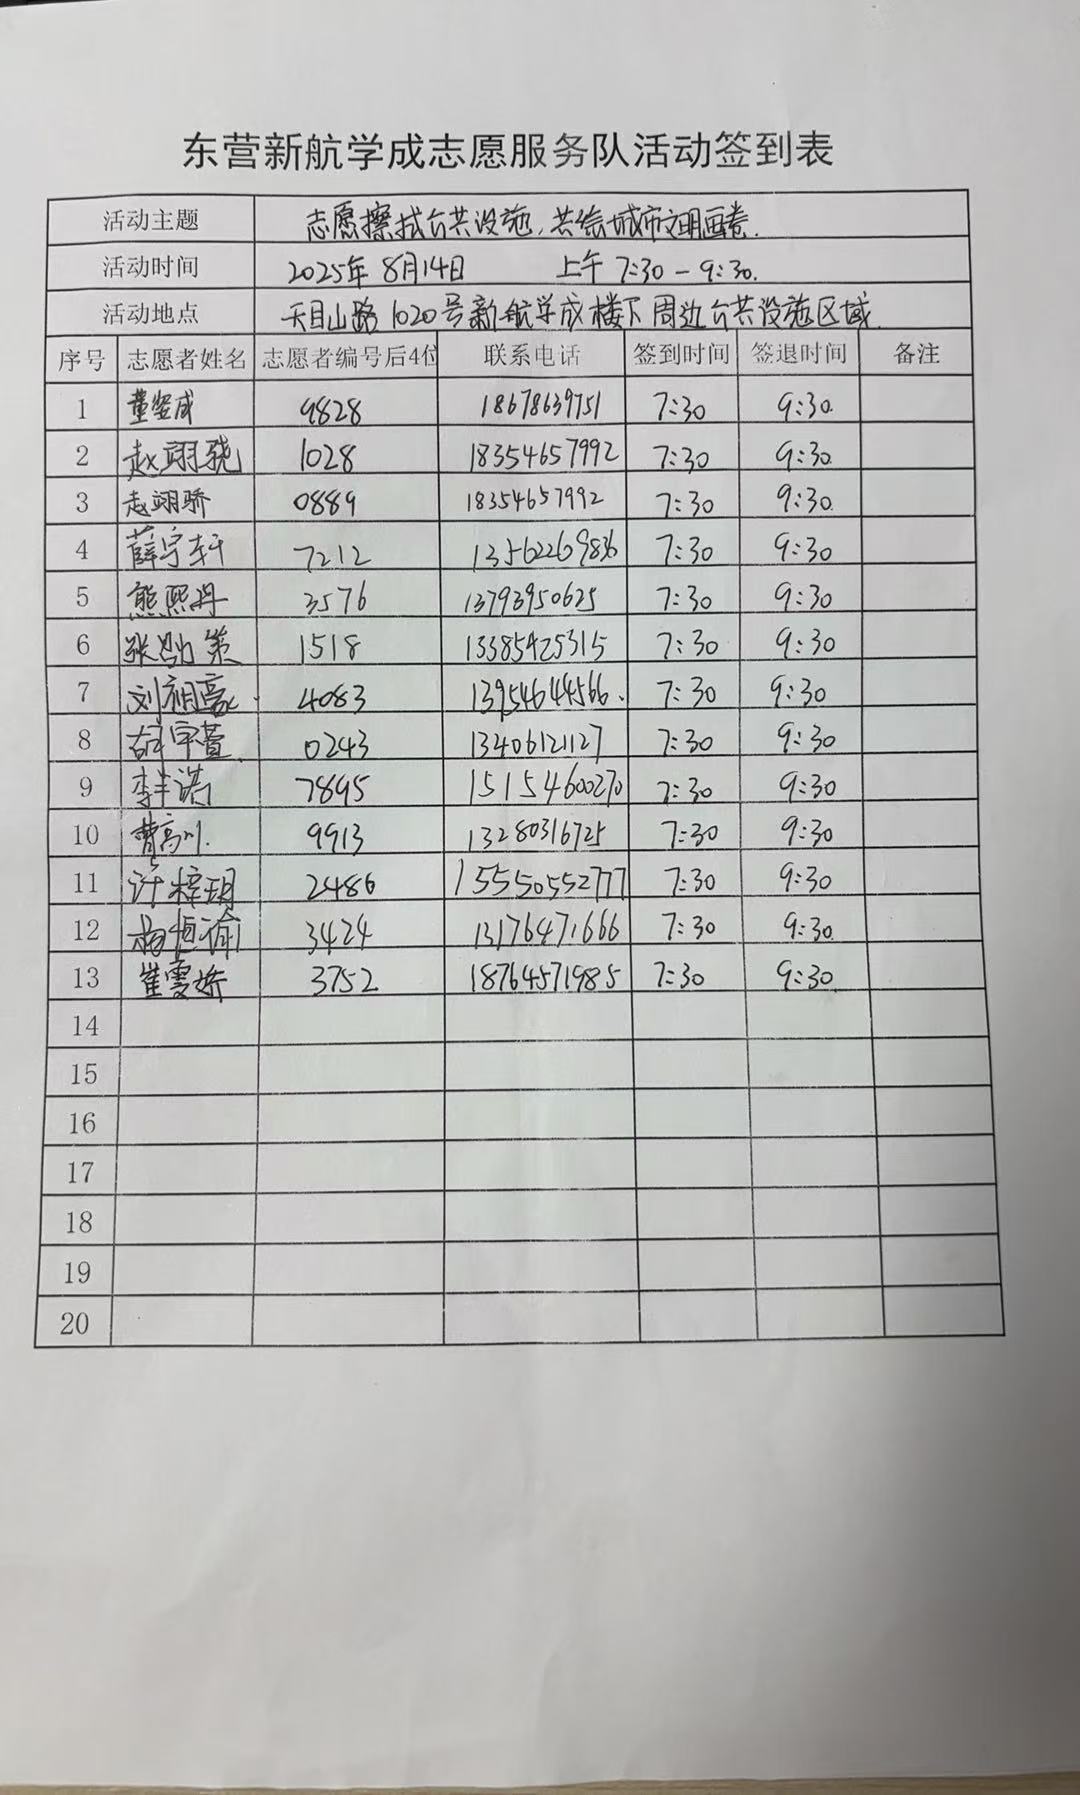 东营新航学成志愿服务队活动签到表
活动主题 志愿擦拭公共设施,共绘城市文明画卷.
活动时间 2025年8月14日 上午 7:30-9:30.
活动地点 天目山路1020号新航学成楼下周边公共设施区域.
序号 志愿者姓名 志愿者编号后4位 联系电话 签到时间 签退时间 备注
1 9828 18678639751 7:30 9:30
2 赵翊骁 1028 18354657992 7:30 9:30
3 赵翊骄 0889 18354657992 7:30 9:30
4 薛宇轩 7212 13562269836 7:30 9:30
5 熊熙丹 3576 13793950625 7:30 9:30
6 张勋策 1518 13385425315 7:30 9:30
7 刘翔豪 4083 13954644566 7:30 9:30
8 0243 13406121127 7:30 9:30
9 李羊诺 7895 15154600270 7:30 9:30
10 曹高川. 9913 13280316725 7:30 9:30
11 许梓玥 2486 15550552777 7:30 9:30
12 3424 13176471666 7:30 9:30
13 崔雯娇 3752 18764571985 7:30 9:30
14
15
16
17
18
19
20